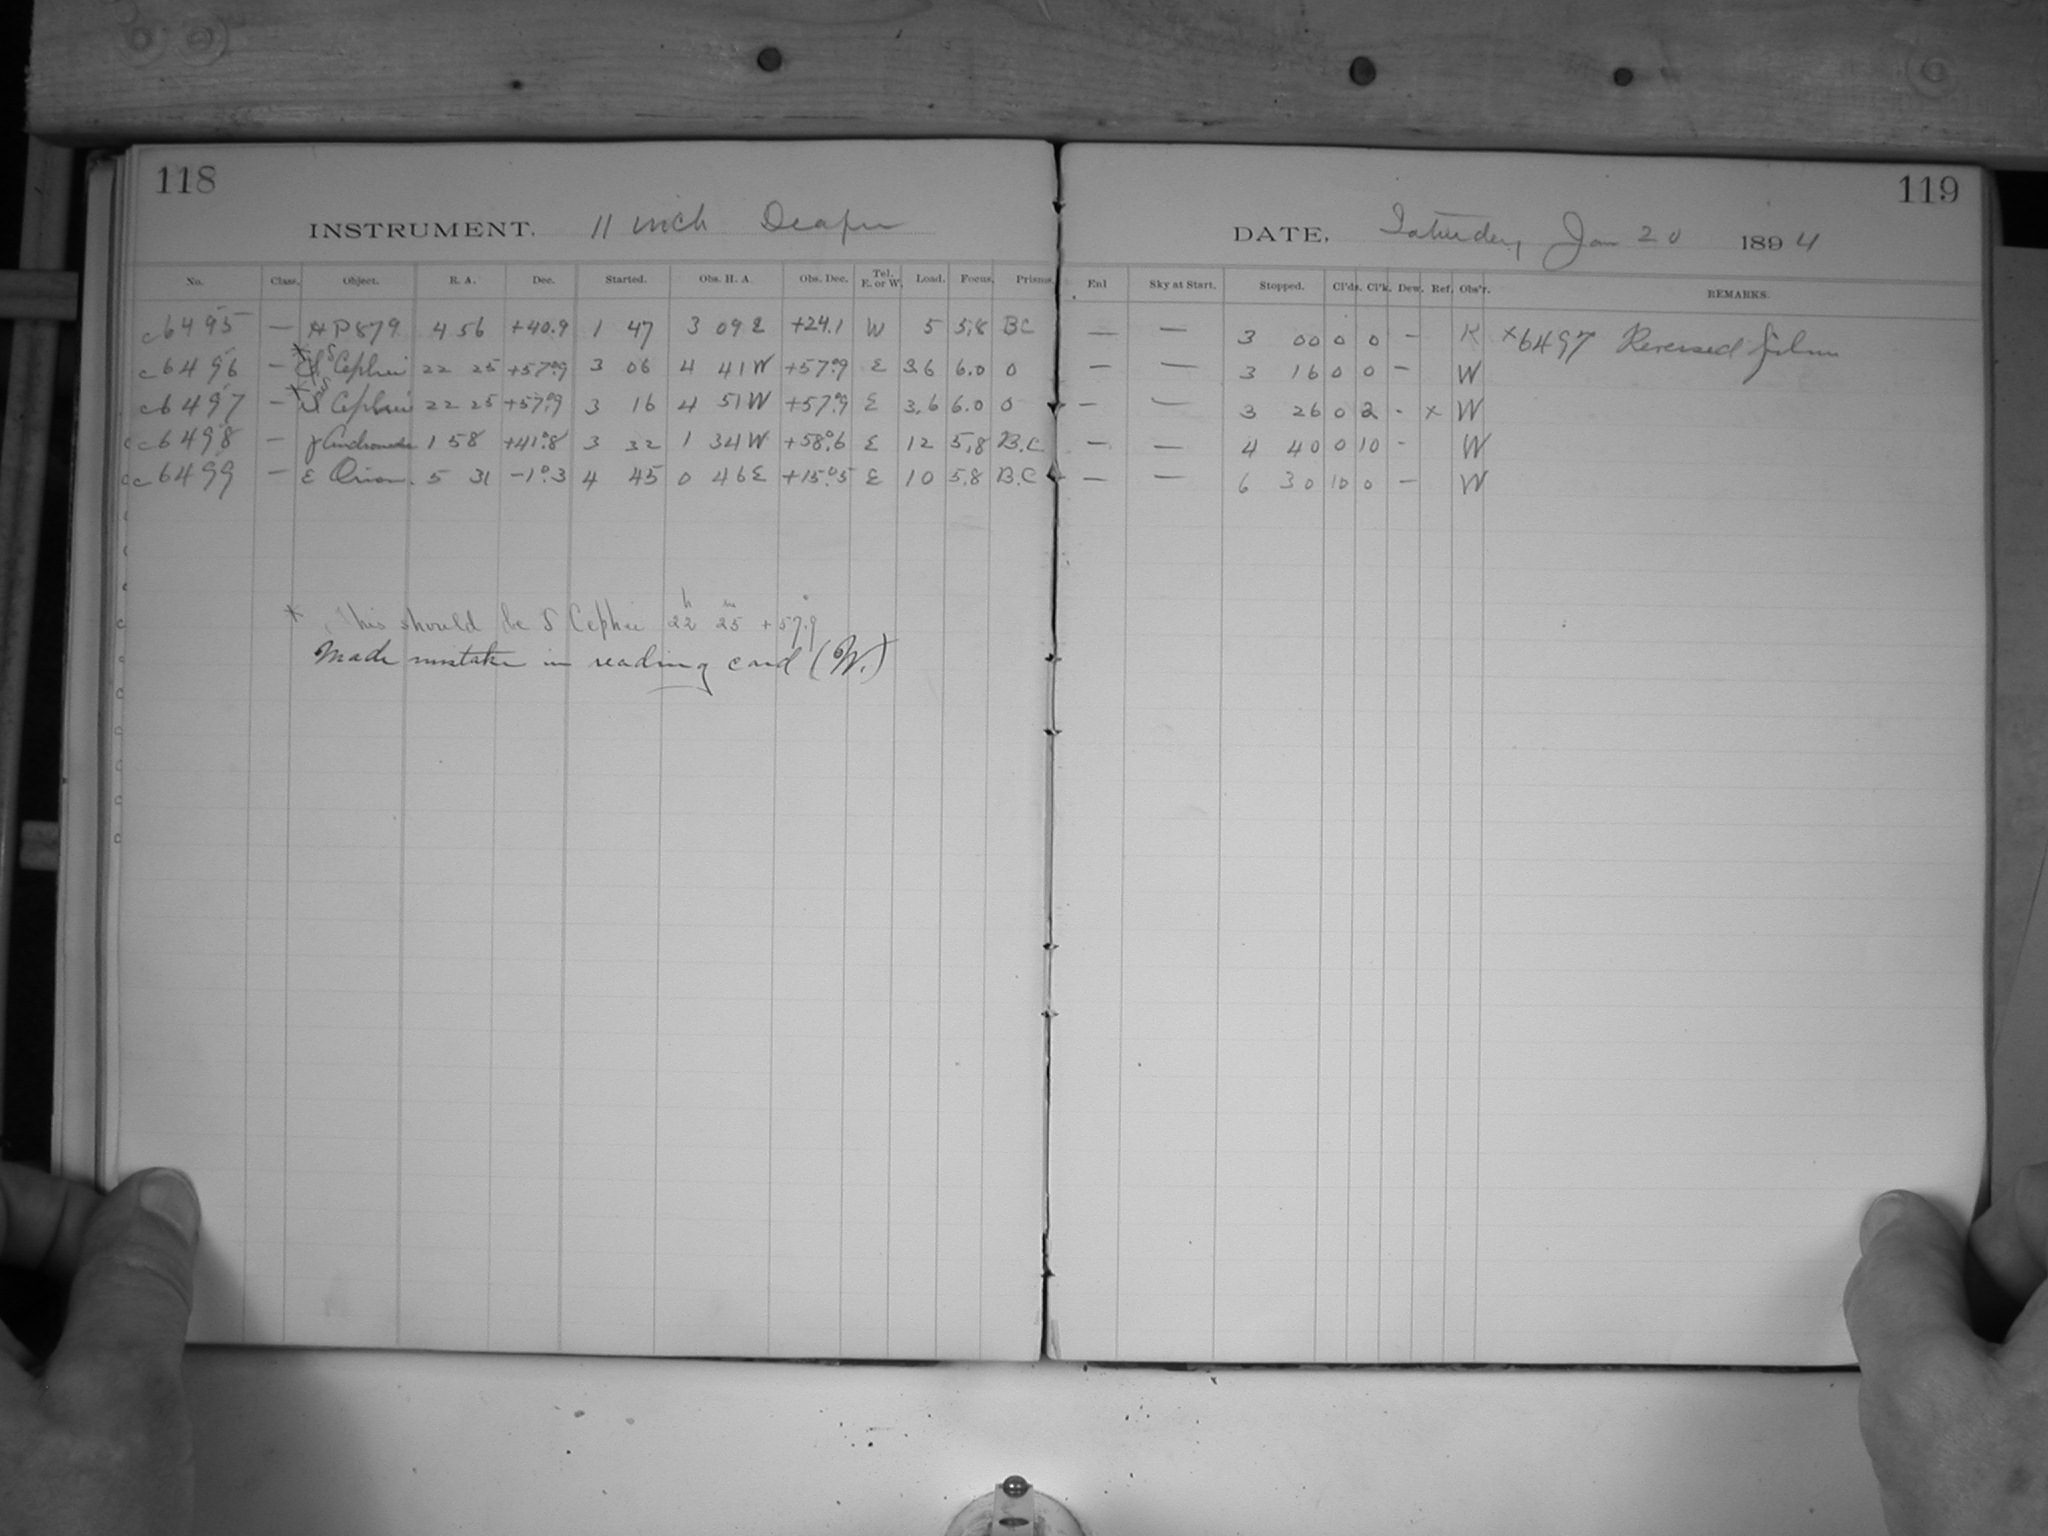 118
INSTRUMENT. 11 inch Draper
No. Class. Object. R. A. Dec. Started. Obs. H. A. Obs. Dec. Tel. E. or W. Load. Focus. Prisms.
c6495 — HP879 4 56 +40.9 1 47 3 09 E +24.1 W 5 5.8 BC
c6496 — * S Cephei 22 25 +57°.9 3 06 4 41 W +57°.9 E 3.6 6.0 0
c6497 — * Cephei 22 25 +57°.9 3 16 4 51 W +57°.9 E 3.6 6.0 0
c6498 — γ Andromedae 1 58 +41°.8 3 32 1 34 W +58°.6 E 12 5.8 B.C
c6499 — ε Orion. 5 31 -1°.3 4 45 0 46 E +15°.5 E 10 5.8 B.C
* This should be δ Cephei 22h 25m +57°.9
Made mistake in reading card (W.)
119
DATE, Saturday, Jan 20 1894
Enl Sky at Start. Stopped. Cl'ds. Cl'k. Dew. Ref. Obs'r. REMARKS.
— — 3 00 0 0 — K ×6497 Reversed film
— — 3 16 0 0 — W
— — 3 26 0 2 - × W
— — 4 40 0 10 - W
— — 6 30 10 0 — W